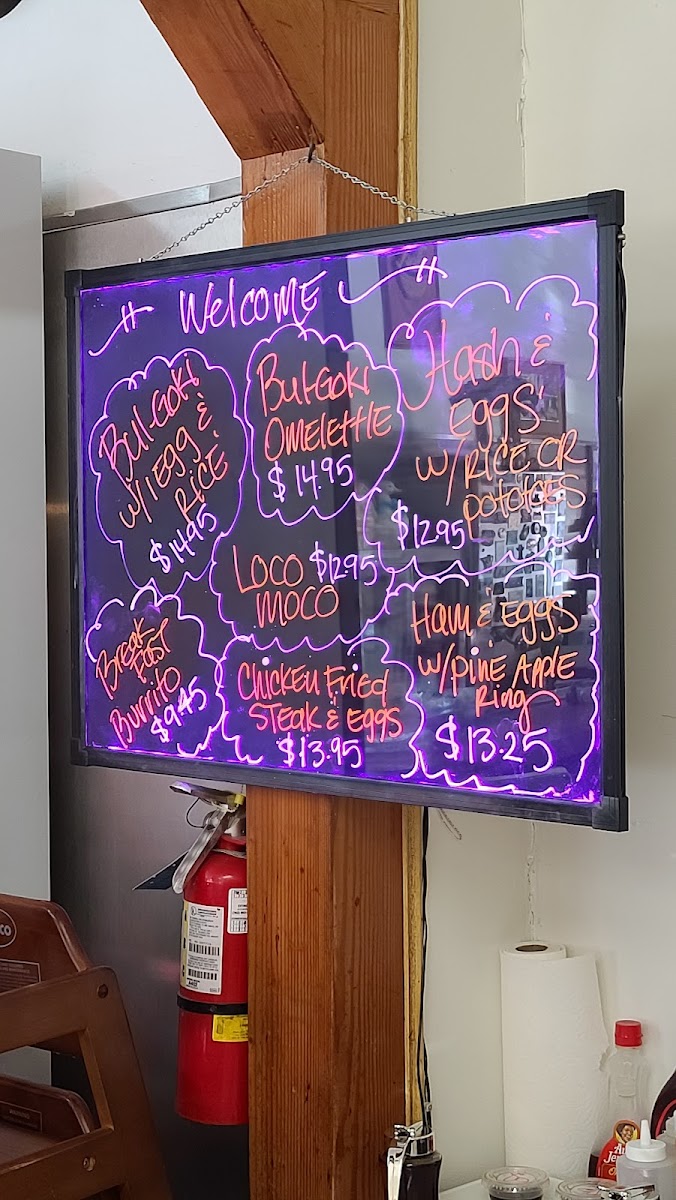 Welcome
Bul-Goki
w/1 Egg &
Rice
$14.95
Bul-Goki
Omelette
$14.95
Hash &
Eggs
w/ Rice or
Pototoes
$12.95
Loco $12.95
Moco
Break
Fast
Burrito
$9.45
Chicken Fried
Steak & Eggs
$13.95
Ham & Eggs
w/ Pine Apple
Ring
$13.25